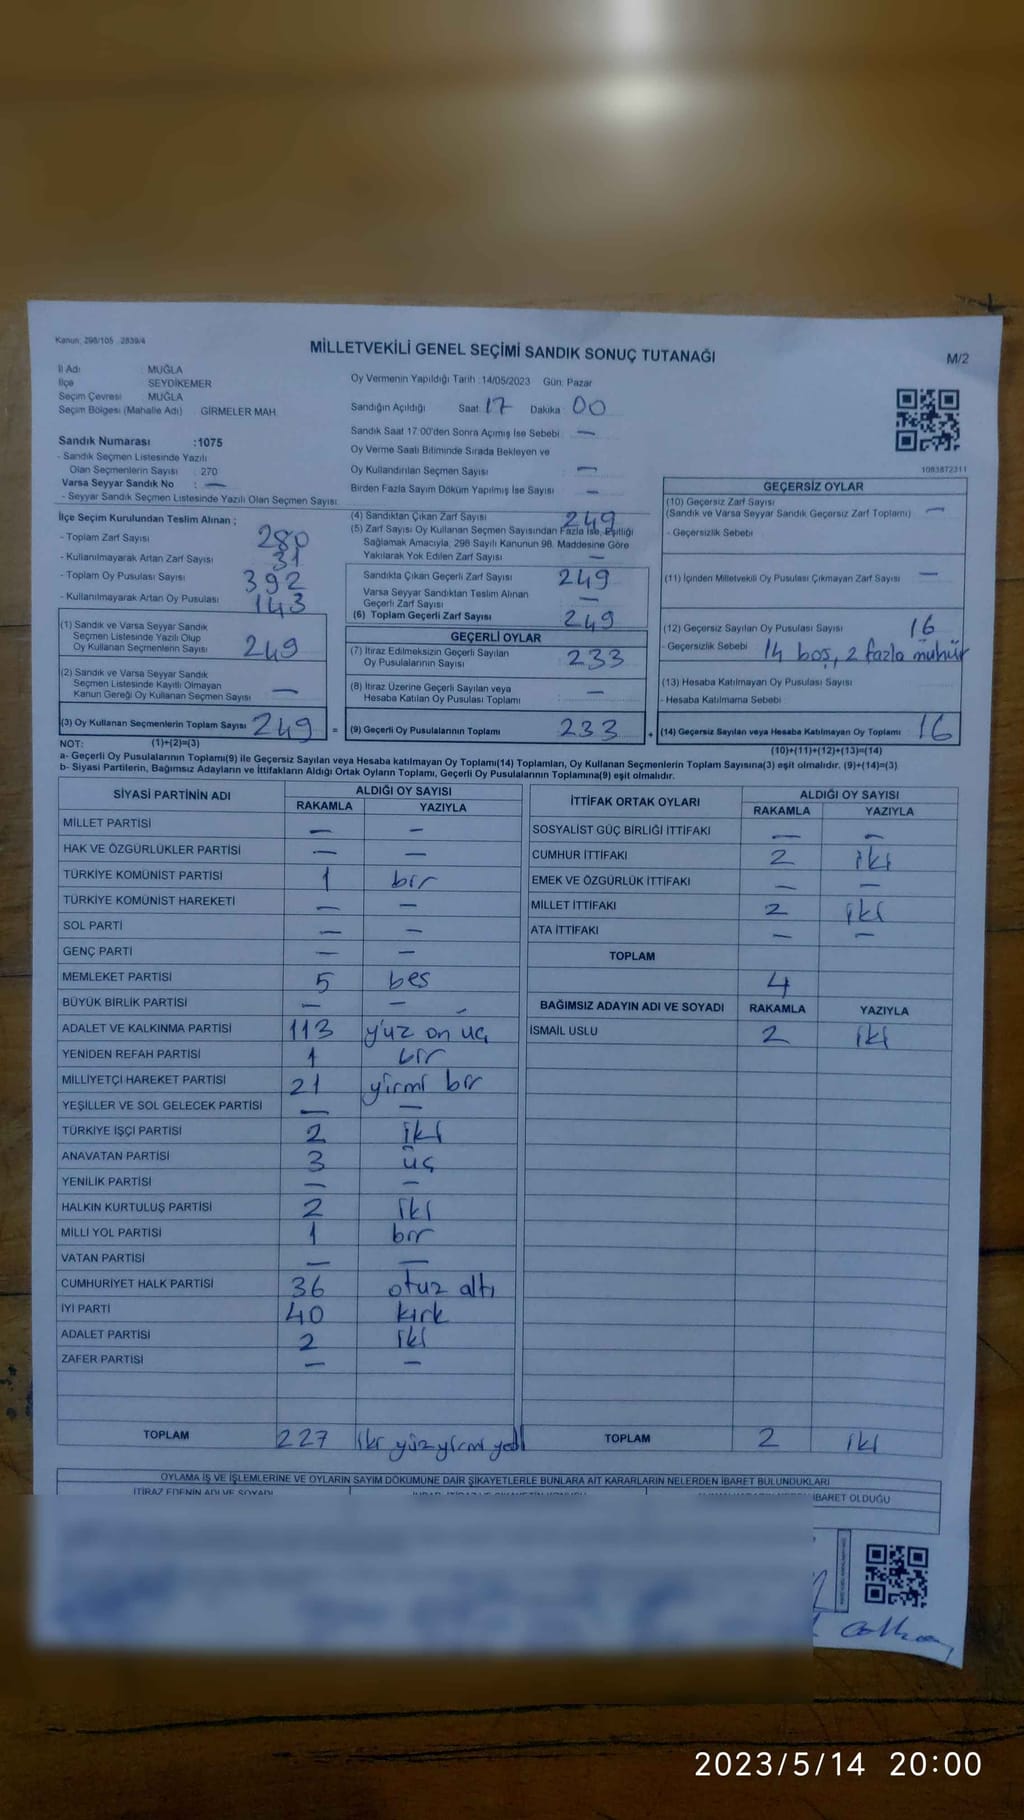 Kanun: 298/105 2839/4
MİLLETVEKİLİ GENEL SEÇİMİ SANDIK SONUÇ TUTANAĞI
M/2
İl Adı : MUĞLA
İlçe SEYDİKEMER
Seçim Çevresi MUĞLA
Seçim Bölgesi (Mahalle Adı) GİRMELER MAH.
Sandık Numarası :1075
- Sandık Seçmen Listesinde Yazılı
Olan Seçmenlerin Sayısı : 270
Varsa Seyyar Sandık No : —
- Seyyar Sandık Seçmen Listesinde Yazılı Olan Seçmen Sayısı
Oy Vermenin Yapıldığı Tarih :14/05/2023 Gün: Pazar
Sandığın Açıldığı Saat 17 Dakika 00
Sandık Saat 17:00'den Sonra Açımış İse Sebebi —
Oy Verme Saati Bitiminde Sırada Bekleyen ve
Oy Kullandırılan Seçmen Sayısı —
Birden Fazla Sayım Döküm Yapılmış İse Sayısı —
1083872311
İlçe Seçim Kurulundan Teslim Alınan ;
- Toplam Zarf Sayısı 280
- Kullanılmayarak Artan Zarf Sayısı 31
- Toplam Oy Pusulası Sayısı 392
- Kullanılmayarak Artan Oy Pusulası 143
(1) Sandık ve Varsa Seyyar Sandık
Seçmen Listesinde Yazılı Olup
Oy Kullanan Seçmenlerin Sayısı 249
(2) Sandık ve Varsa Seyyar Sandık
Seçmen Listesinde Kayıtlı Olmayan
Kanun Gereği Oy Kullanan Seçmen Sayısı —
(3) Oy Kullanan Seçmenlerin Toplam Sayısı 249 =
(4) Sandıktan Çıkan Zarf Sayısı 249
(5) Zarf Sayısı Oy Kullanan Seçmen Sayısından Fazla İse, Eşitliği
Sağlamak Amacıyla, 298 Sayılı Kanunun 98. Maddesine Göre
Yakılarak Yok Edilen Zarf Sayısı —
Sandıkta Çıkan Geçerli Zarf Sayısı 249
Varsa Seyyar Sandıktan Teslim Alınan
Geçerli Zarf Sayısı —
(6) Toplam Geçerli Zarf Sayısı 249
GEÇERLİ OYLAR
(7) İtiraz Edilmeksizin Geçerli Sayılan
Oy Pusulalarının Sayısı 233
(8) İtiraz Üzerine Geçerli Sayılan veya
Hesaba Katılan Oy Pusulası Toplamı —
(9) Geçerli Oy Pusulalarının Toplamı 233 +
GEÇERSİZ OYLAR
(10) Geçersiz Zarf Sayısı
(Sandık ve Varsa Seyyar Sandık Geçersiz Zarf Toplamı) —
- Geçersizlik Sebebi
(11) İçinden Milletvekili Oy Pusulası Çıkmayan Zarf Sayısı —
(12) Geçersiz Sayılan Oy Pusulası Sayısı 16
- Geçersizlik Sebebi 14 boş, 2 fazla mühür
(13) Hesaba Katılmayan Oy Pusulası Sayısı
- Hesaba Katılmama Sebebi
(14) Geçersiz Sayılan veya Hesaba Katılmayan Oy Toplamı 16
NOT: (1)+(2)=(3)
(10)+(11)+(12)+(13)=(14)
a- Geçerli Oy Pusulalarının Toplamı(9) ile Geçersiz Sayılan veya Hesaba katılmayan Oy Toplamı(14) Toplamları, Oy Kullanan Seçmenlerin Toplam Sayısına(3) eşit olmalıdır. (9)+(14)=(3)
b- Siyasi Partilerin, Bağımsız Adayların ve İttifakların Aldığı Ortak Oyların Toplamı, Geçerli Oy Pusulalarının Toplamına(9) eşit olmalıdır.
SİYASİ PARTİNİN ADI ALDIĞI OY SAYISI
RAKAMLA YAZIYLA
MİLLET PARTİSİ — —
HAK VE ÖZGÜRLÜKLER PARTİSİ — —
TÜRKİYE KOMÜNİST PARTİSİ 1 bir
TÜRKİYE KOMÜNİST HAREKETİ — —
SOL PARTİ — —
GENÇ PARTİ — —
MEMLEKET PARTİSİ 5 beş
BÜYÜK BİRLİK PARTİSİ — —
ADALET VE KALKINMA PARTİSİ 113 yüz on üç
YENİDEN REFAH PARTİSİ 1 bir
MİLLİYETÇİ HAREKET PARTİSİ 21 yirmi bir
YEŞİLLER VE SOL GELECEK PARTİSİ — —
TÜRKİYE İŞÇİ PARTİSİ 2 iki
ANAVATAN PARTİSİ 3 üç
YENİLİK PARTİSİ — —
HALKIN KURTULUŞ PARTİSİ 2 iki
MİLLİ YOL PARTİSİ 1 bir
VATAN PARTİSİ — —
CUMHURİYET HALK PARTİSİ 36 otuz altı
İYİ PARTİ 40 kırk
ADALET PARTİSİ 2 iki
ZAFER PARTİSİ — —
TOPLAM 227 iki yüz yirmi yedi
İTTİFAK ORTAK OYLARI ALDIĞI OY SAYISI
RAKAMLA YAZIYLA
SOSYALİST GÜÇ BİRLİĞİ İTTİFAKI — —
CUMHUR İTTİFAKI 2 iki
EMEK VE ÖZGÜRLÜK İTTİFAKI — —
MİLLET İTTİFAKI 2 iki
ATA İTTİFAKI — —
TOPLAM 4
BAĞIMSIZ ADAYIN ADI VE SOYADI RAKAMLA YAZIYLA
İSMAİL USLU 2 iki
TOPLAM 2 iki
OYLAMA İŞ VE İŞLEMLERİNE VE OYLARIN SAYIM DÖKÜMÜNE DAİR ŞİKAYETLERLE BUNLARA AİT KARARLARIN NELERDEN İBARET BULUNDUKLARI
İTİRAZ EDENİN ADI VE SOYADI
İBARET OLDUĞU
2023/5/14 20:00